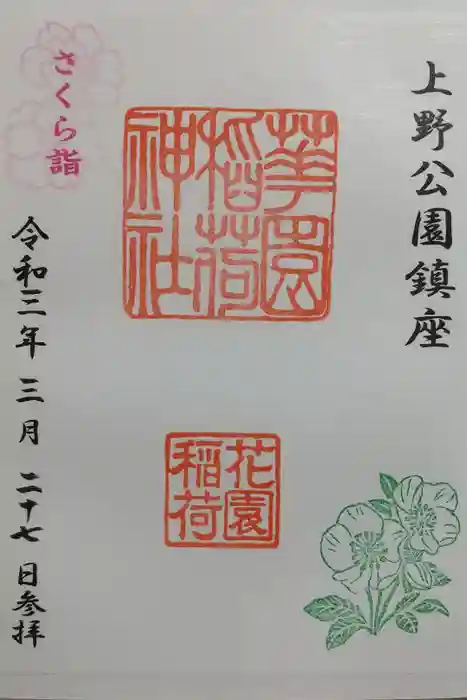 上野公園鎮座
華園
稲荷
神社
花園
稲荷
さくら詣
令和三年 三月 二十七 日参拝